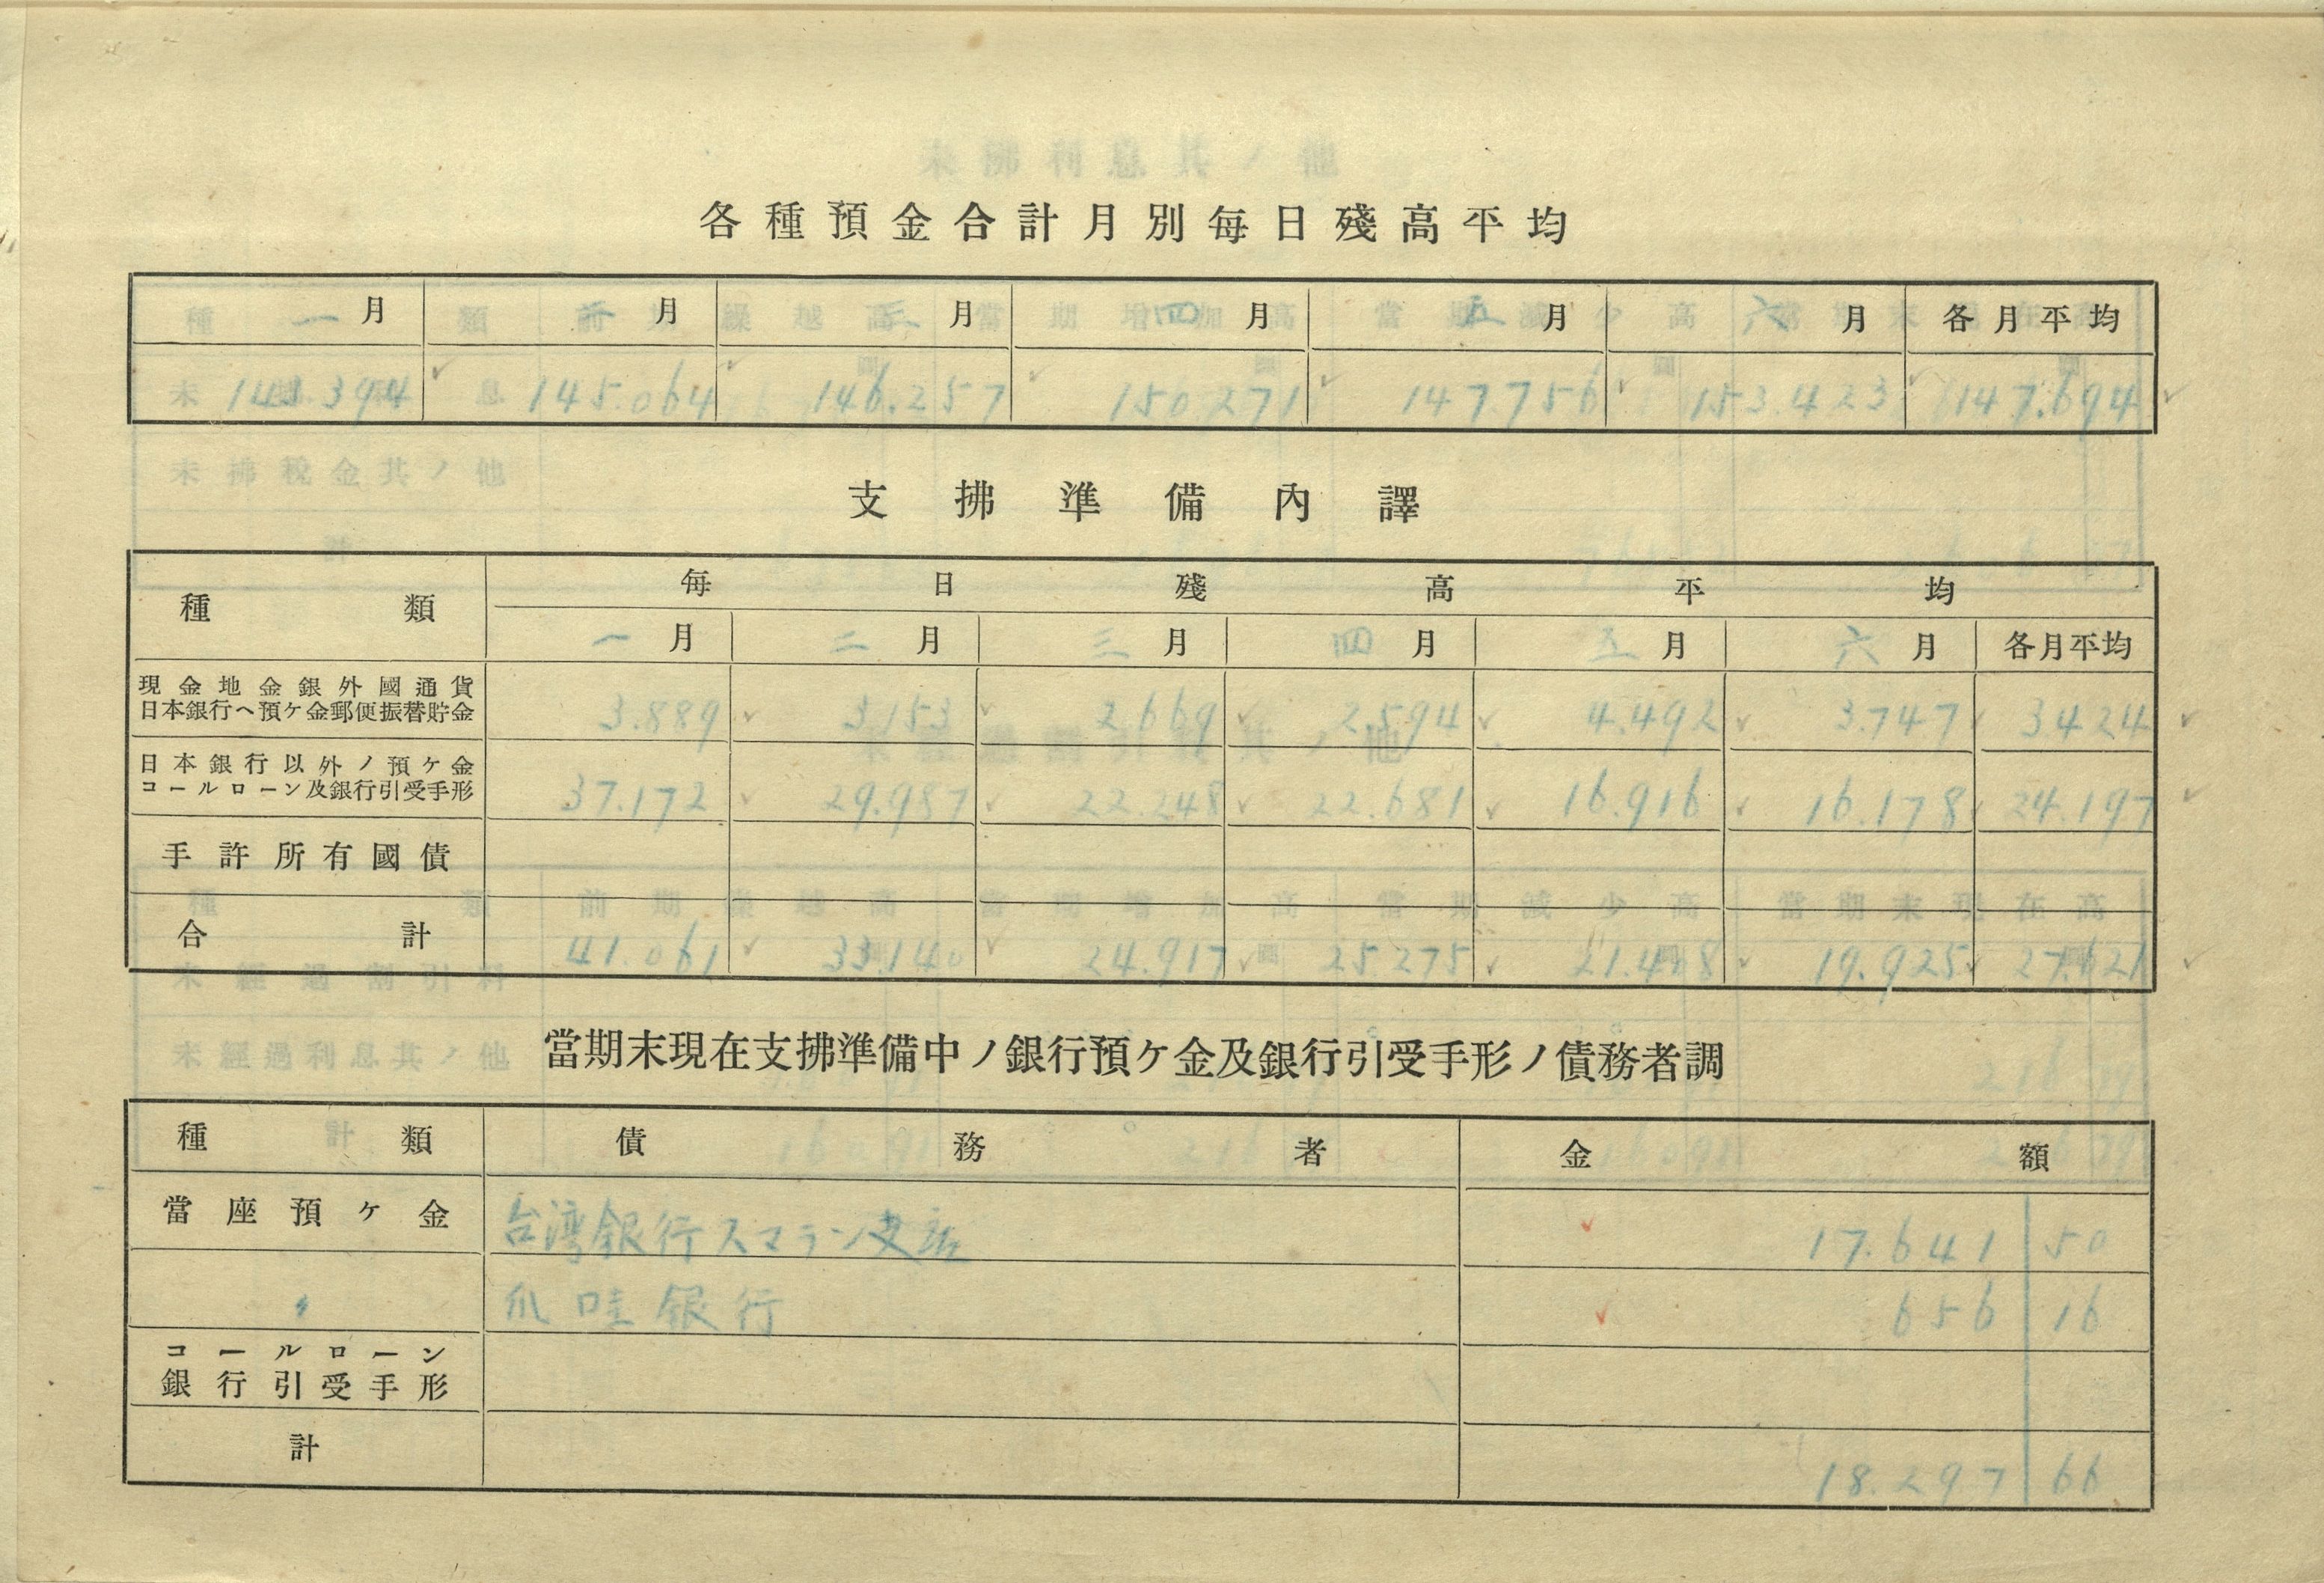 各種預金合計月別每日殘高平均
一月 二月 三月 四月 五月 六月 各月平均
143.394 145.064 146.257 150.271 147.756 153.423 147.694
支拂準備內譯
種類 每日殘高平均
一月 二月 三月 四月 五月 六月 各月平均
現金地金銀外國通貨
日本銀行ヘ預ケ金郵便振替貯金
3.889 3.153 2.669 2.594 4.492 3.747 3.424
日本銀行以外ノ預ケ金
コールローン及銀行引受手形
37.172 29.987 22.248 22.681 16.916 16.178 24.197
手許所有國債
合計 41.061 33.140 24.917 25.275 21.408 19.925 27.621
當期末現在支拂準備中ノ銀行預ケ金及銀行引受手形ノ債務者調
種類 債務者 金額
當座預ケ金 台湾銀行スマラン支店 17.641 50
〃 爪哇銀行 656 16
コールローン
銀行引受手形
計 18.297 66